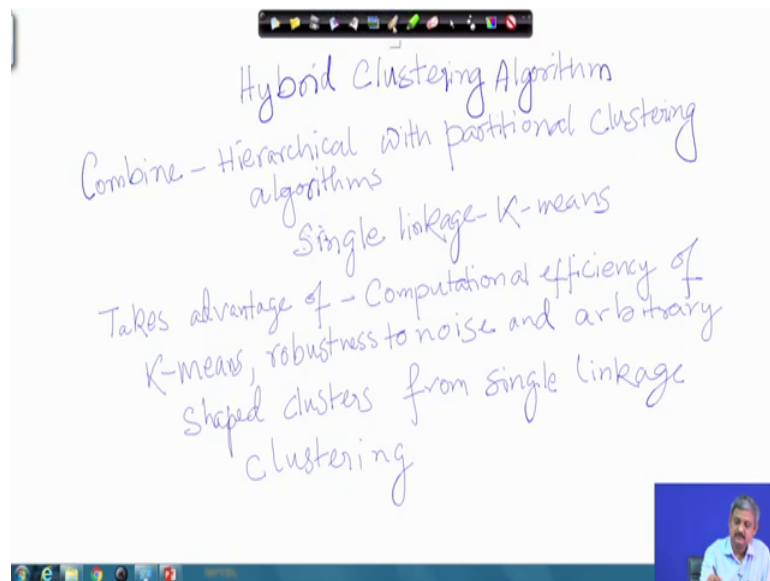 Hybrid Clustering Algorithm
Combine - Hierarchical with partitional clustering
algorithms
Single linkage - K-means
Takes advantage of - Computational efficiency of
K-means, robustness to noise and arbitrary
shaped clusters from single linkage
clustering